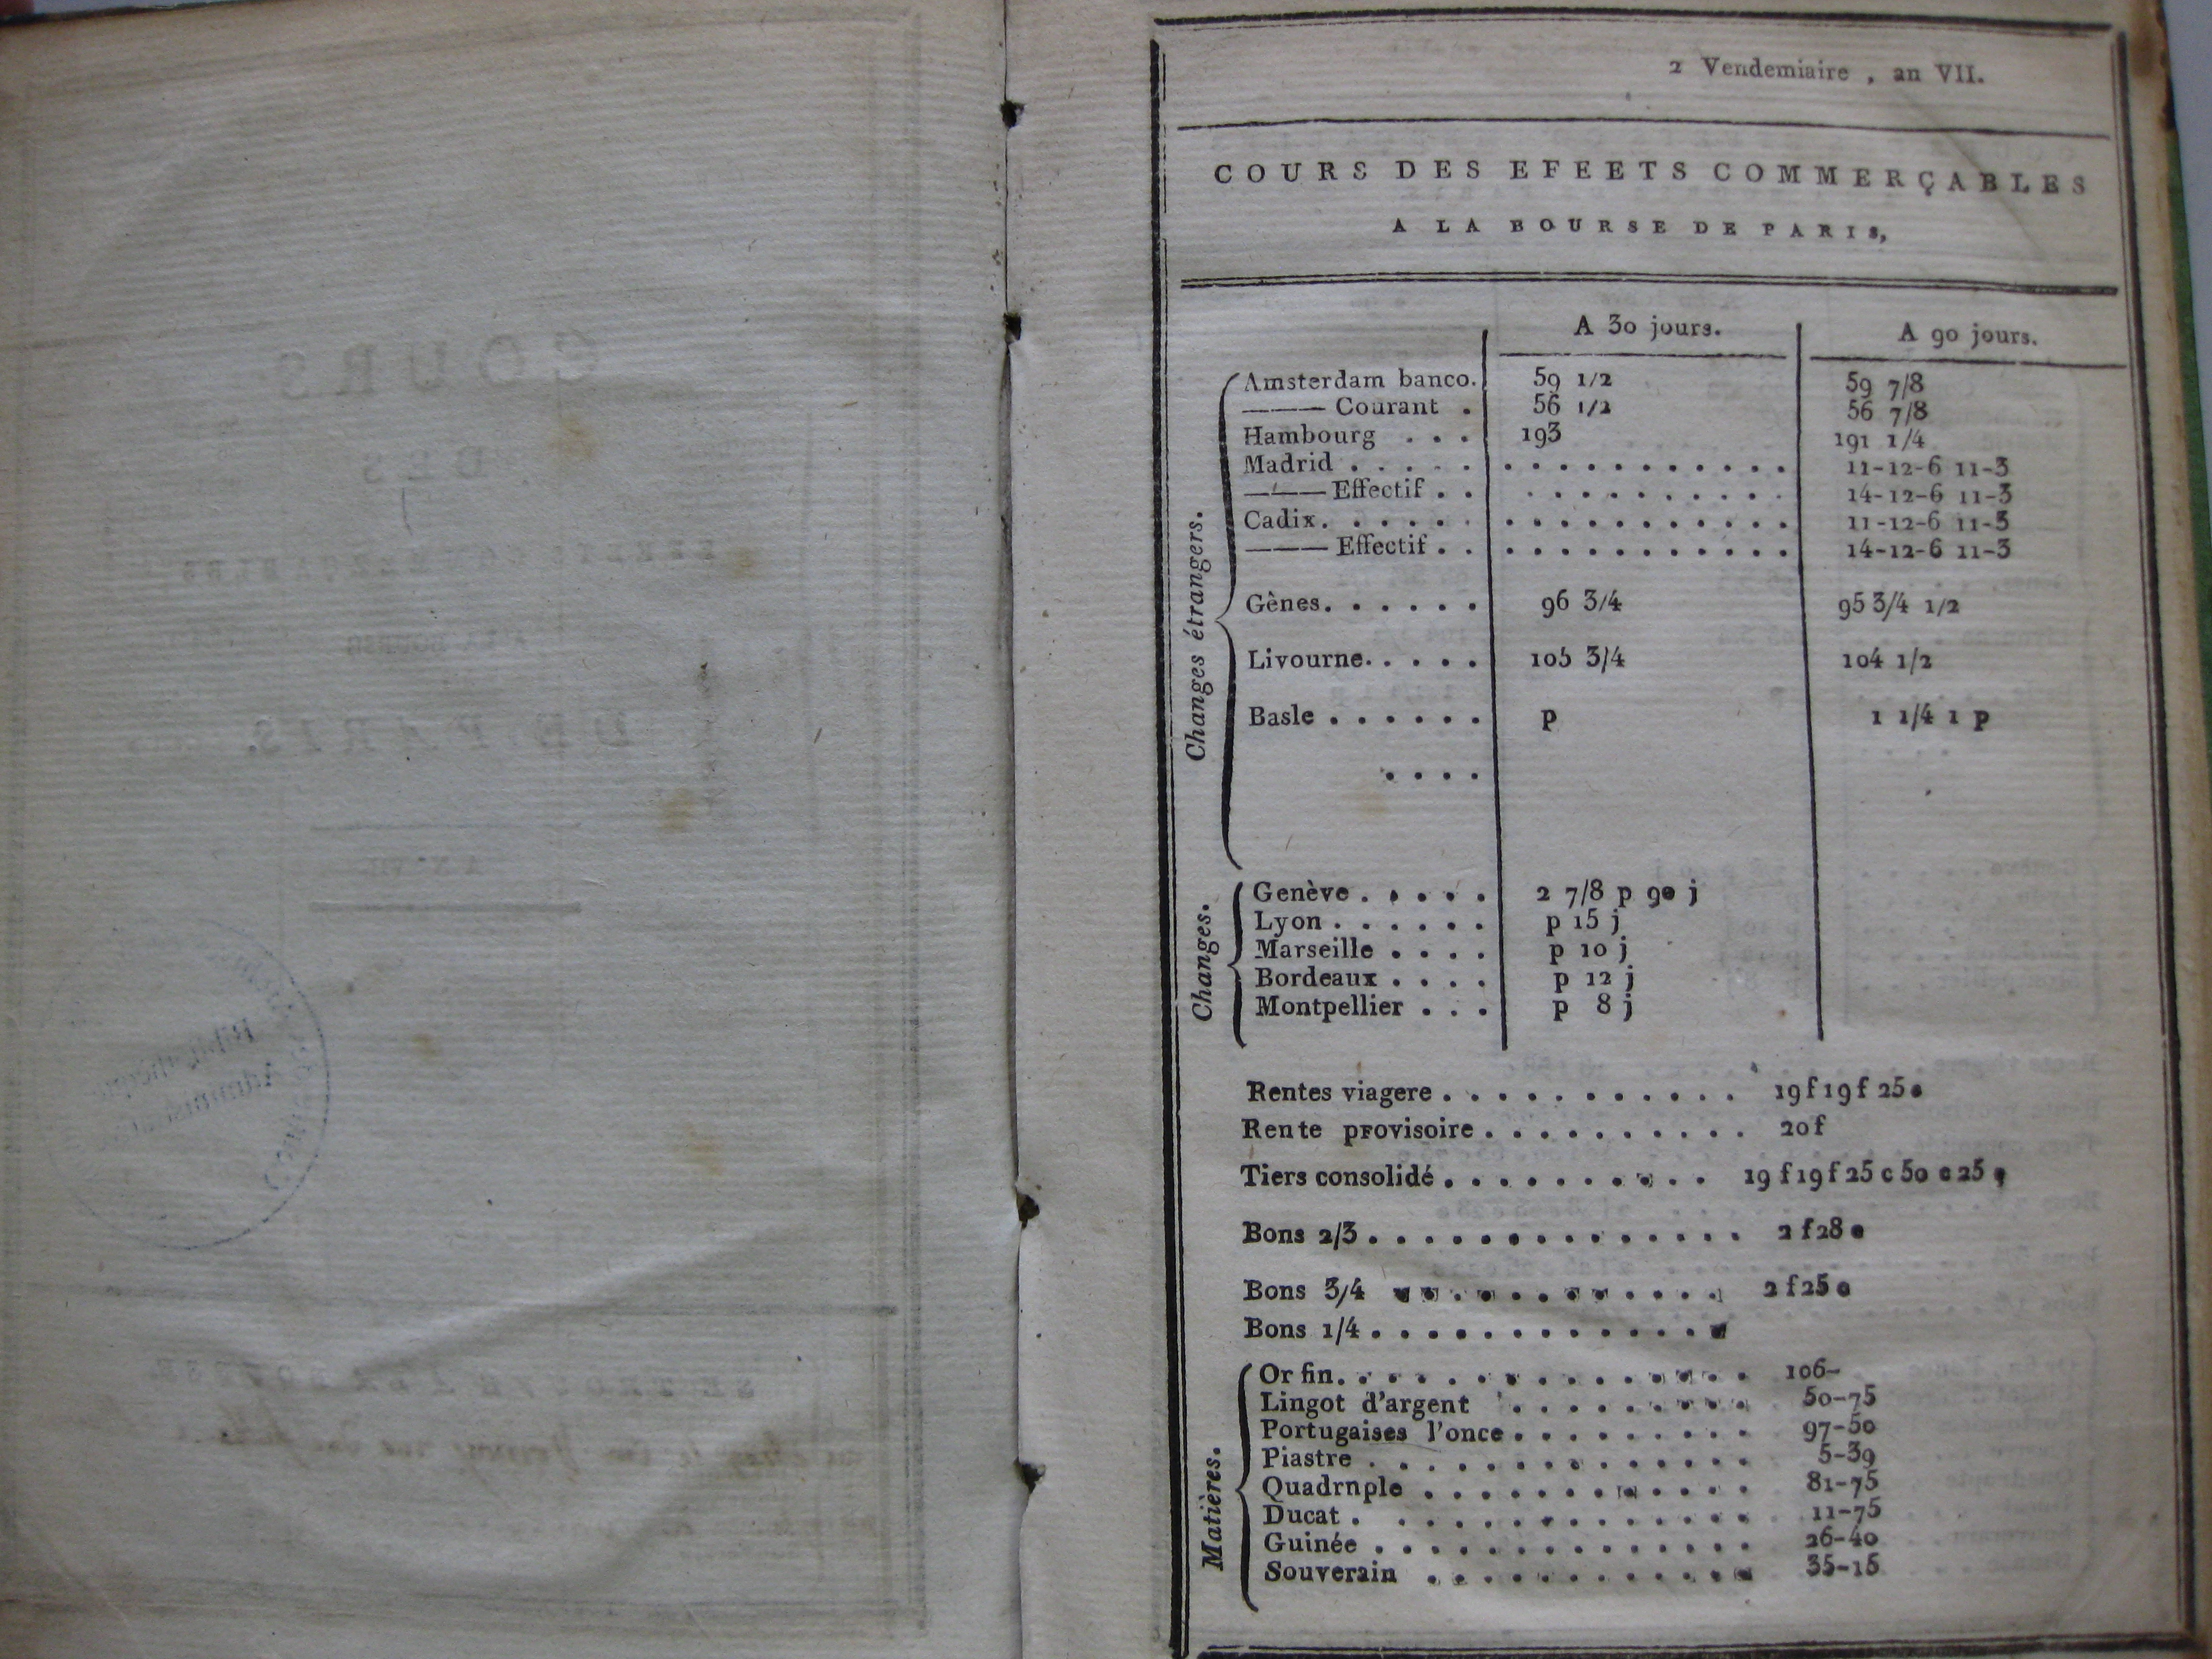 2 Vendemiaire , an VII.
COURS DES EFEETS COMMERÇABLES
A LA BOURSE DE PARIS,
A 30 jours. A 90 jours.
Changes étrangers.
Amsterdam banco. 59 1/2 59 7/8
——— Courant . 56 1/2 56 7/8
Hambourg . . . 193 191 1/4
Madrid . . . . . . . . . . . . . . . . 11-12-6 11-3
——— Effectif . . . . . . . . . . . . 14-12-6 11-3
Cadix. . . . . . . . . . . . . . . . . 11-12-6 11-3
——— Effectif . . . . . . . . . . . . . 14-12-6 11-3
Gènes. . . . . . 96 3/4 95 3/4 1/2
Livourne. . . . . 105 3/4 104 1/2
Basle . . . . . . p 1 1/4 1 p
. . . .
Changes.
Genève . . . . . 2 7/8 p 90 j
Lyon . . . . . . p 15 j
Marseille . . . . p 10 j
Bordeaux . . . . p 12 j
Montpellier . . . p 8 j
Rentes viagere . . . . . . . . . . . 19 f 19 f 25 c
Rente provisoire . . . . . . . . . . 20 f
Tiers consolidé . . . . . . . . . . 19 f 19 f 25 c 50 c 25 c
Bons 2/3 . . . . . . . . . . . . . . 2 f 28 c
Bons 3/4 . . . . . . . . . . . . 2 f 25 c
Bons 1/4 . . . . . . . . . . . . .
Matières.
Or fin. . . . . . . . . . . . . . . 106-
Lingot d'argent . . . . . . . . . 50-75
Portugaises l'once . . . . . . . . . 97-50
Piastre . . . . . . . . . . . . . . 5-39
Quadrnple . . . . . . . . . . . . 81-75
Ducat . . . . . . . . . . . . . . 11-75
Guinée . . . . . . . . . . . . . . 26-40
Souverain . . . . . . . . . . . . 35-15